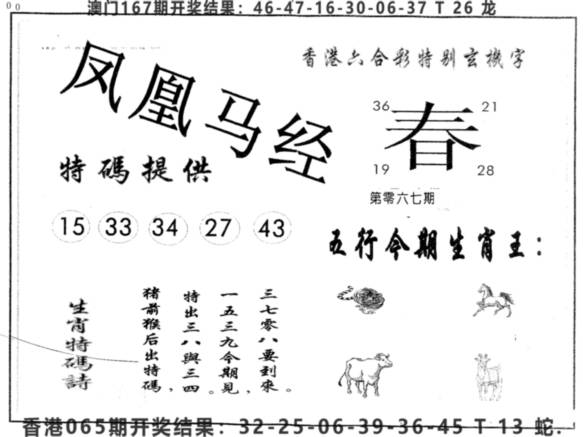 澳门167期开奖结果：46-47-16-30-06-37 T 26 龙
香港六合彩特别玄機字
凤凰马经
36 21
春
19 28
特碼提供
第零六七期
15 33 34 27 43
五行今期生肖王：
三七零八要到來。
一五三九今期見，
特出三八與三四。
豬前猴后出特碼，
生肖特碼詩
香港065期开奖结果：32-25-06-39-36-45 T 13 蛇.